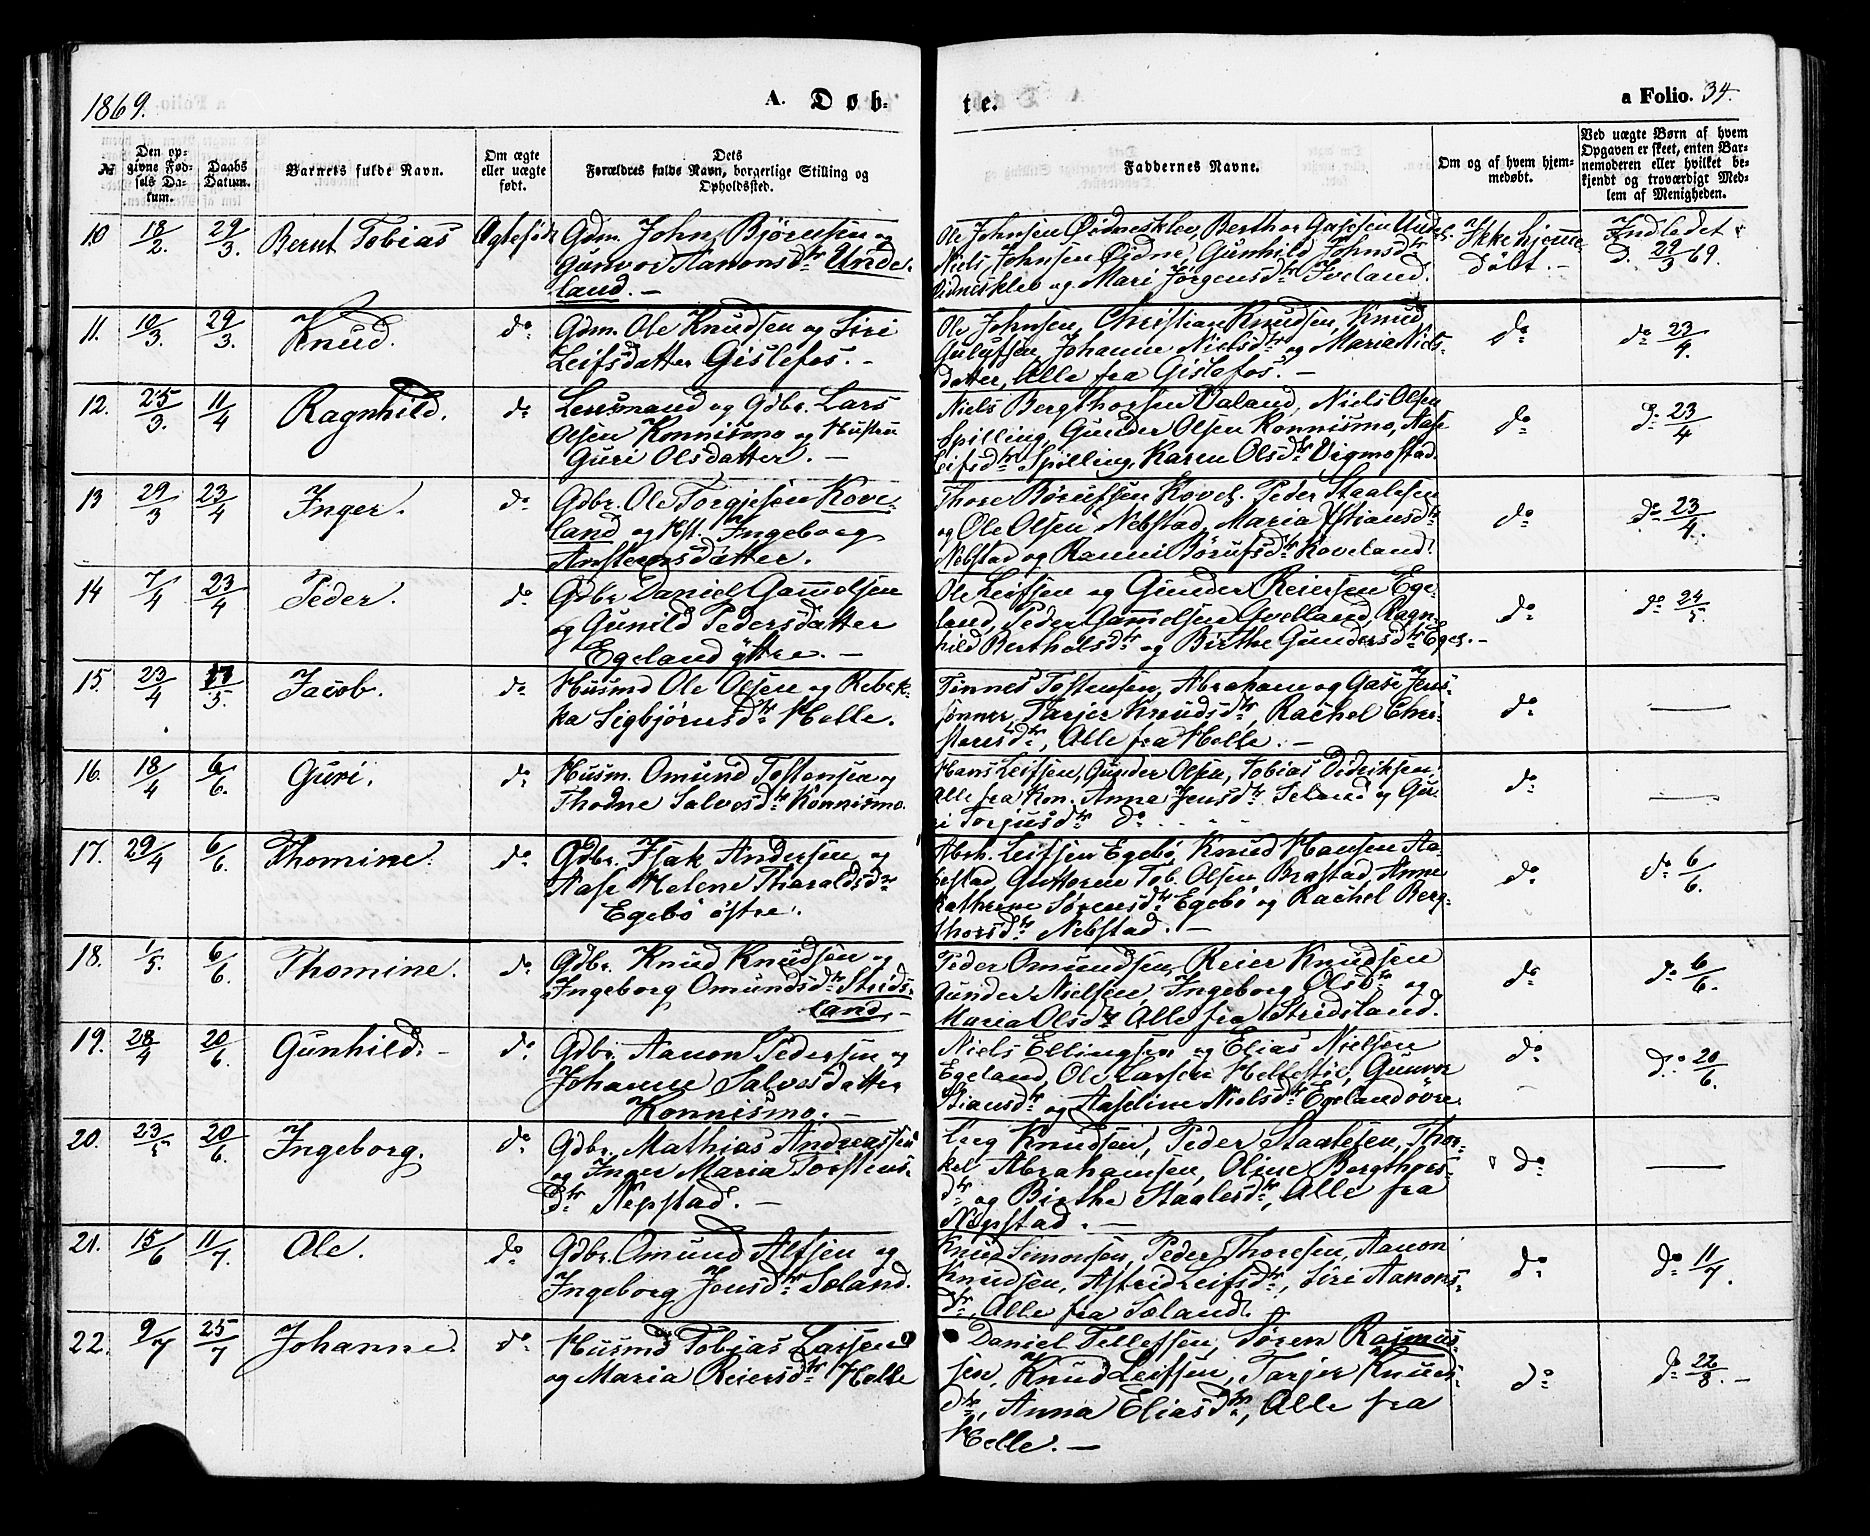 1869.
A. Døb-
te.
a Folio. 34.
№
Den op-
givne Fød-
sels Da-
tum.
Daabs
Datum.
Barnets fulde Navn.
Om ægte
eller uægte
født.
Dets
Forældres fulde Navn, borgerlige Stilling og
Opholdssted.
Faddernes Navne.
Om og af hvem hjem-
medøbt.
Ved uægte Børn af hvem
Opgaven er skeet, enten Bar-
nemoderen eller hvilket be-
kjendt og troværdigt Med-
lem af Menigheden.
10 18/2. 29/3. Bernt Tobias Ægtefødt Gdm. John Bjørnsen og
Gunvor Aanonsdtr Unde-
land. -
Ole Johnsen Øidnesklev, Berthor Gassesen Undel.
Niels Johnsen Øidne, Gunhild Johnsdtr
Øidnesklev og Mari Jørgensdtr Iveland.
Ikke hjemme
døbt. -
Indledet
d. 29/3 69.
11. 10/3. 29/3. Knud. do Gdm. Ole Knudsen og Siri
Leifsdatter Gislefos. -
Ole Johnsen, Christian Knudsen, Knud
Gulufsen, Johanne Nielsdtr og Maria Niels-
datter, Alle fra Gislefos. -
do
do 23/4.
12. 25/3. 11/4 Ragnhild. do Lensmand og Gdbr. Lars
Olsen Konnismo og Hustru
Guri Olsdatter. -
Niels Bergthorsen Valand, Niels Olsen
Spilling, Gunder Olsen Konnismo, Aase
Leifsdtr Spilling, Karen Olsdtr Vigmostad.
do
do 23/4
13 29/3 23/4 Inger. do Gdbr. Ole Torgjesen Kove-
land og Hst. Ingeborg
Arnsteensdatter.
Thore Børufsen Kovel. Peder Staalesen
og Ole Olsen Nebstad, Maria Stiansdtr
Nebstad og Ranni Børufsdtr Koveland.
do
do 23/4.
14 7/4 23/4 Peder. do Gdbr Daniel Gamelsen
og Gunild Pedersdatter
Egeland yttre. -
Ole Leifsen og Gunder Reiersen Ege-
land, Peder Gamelsen Qvelland, Ragn-
hild Bertholsdtr og Birthe Gundersdtr Egel. -
do
do 24/5.
15. 23/4 17/5. Jacob. do Husmd Ole Olsen og Rebek-
ka Sigbjørnsdtr Helle.
Tønnes Tostensen, Abraham og Gase Jens-
sønner, Tarjer Knudsdtr, Rachel Chri-
stensdtr, Alle fra Helle. -
do
16. 18/4 6/6. Guri. do Husm. Omund Tostensen og
Thodne Salvesdtr Konnismo.
Hans Leifsen, Gunder Olsen, Tobias Didriksen,
Alle fra Kon. Anna Jensdtr Seland og Gu-
ri Torjusdtr do
do
17. 29/4 6/6. Thomine. do Gdbr. Isak Andersen og
Aase Helene Tharaldsdtr
Egebö östre.
Abrh. Leifsen Egebö, Knud Hansen Aa-
bestad, Guttorm Tob. Olsen Brastad, Anne
Kathrine Sørensdtr Egebö og Rachel Berg-
thorsdtr Nebstad. -
do
do 6/6.
18. 1/5. 6/6 Thomine. do Gdbr. Knud Knudsen og
Ingeborg Omundsdtr Strids-
land. -
Peder Omundsen, Reier Knudsen
Gunder Nielsen, Ingeborg Olsdtr og
Maria Olsdtr Alle fra Stridsland.
do
do 6/6.
19. 28/4 20/6. Gunhild. - do Gdbr. Aanon Pedersen og
Johanne Salvesdatter
Konnismo. -
Niels Ellingsen og Elias Nielsen
Egeland, Ole Larsen Hellestie, Gunvor
Stiansdtr og Aaseline Nielsdtr Egeland övre.
do
do 20/6.
20. 23/5 20/6. Ingeborg. do Gdbr. Mathias Andreassen
og Inger Maria Torstens-
dtr Nepstad. -
Knudsen, Peder Staalesen, Thor-
kel Abrahamsen, Oline Bergthors-
dtr og Birthe Staalesdtr, Alle fra
Nepstad. -
do
21. 15/6 11/7. Ole. do Gdbr. Omund Alfsen og
Ingeborg Jensdtr Sæland.
Knud Simonsen, Peder Thoresen, Aanon
Knudsen, Astrid Leifsdtr, Siri Aanons-
dtr, Alle fra Sæland.
do
do 11/7.
22. 9/7 25/7 Johanne. do Husmd Tobias Larsen
og Maria Reiersdtr Helle
Daniel Tellefsen, Sören Rasmus-
sen, Knud Leifsen, Tarjer Knuds-
dtr, Anna Eliasdtr, Alle fra
Helle. -
do
do 22/8. -